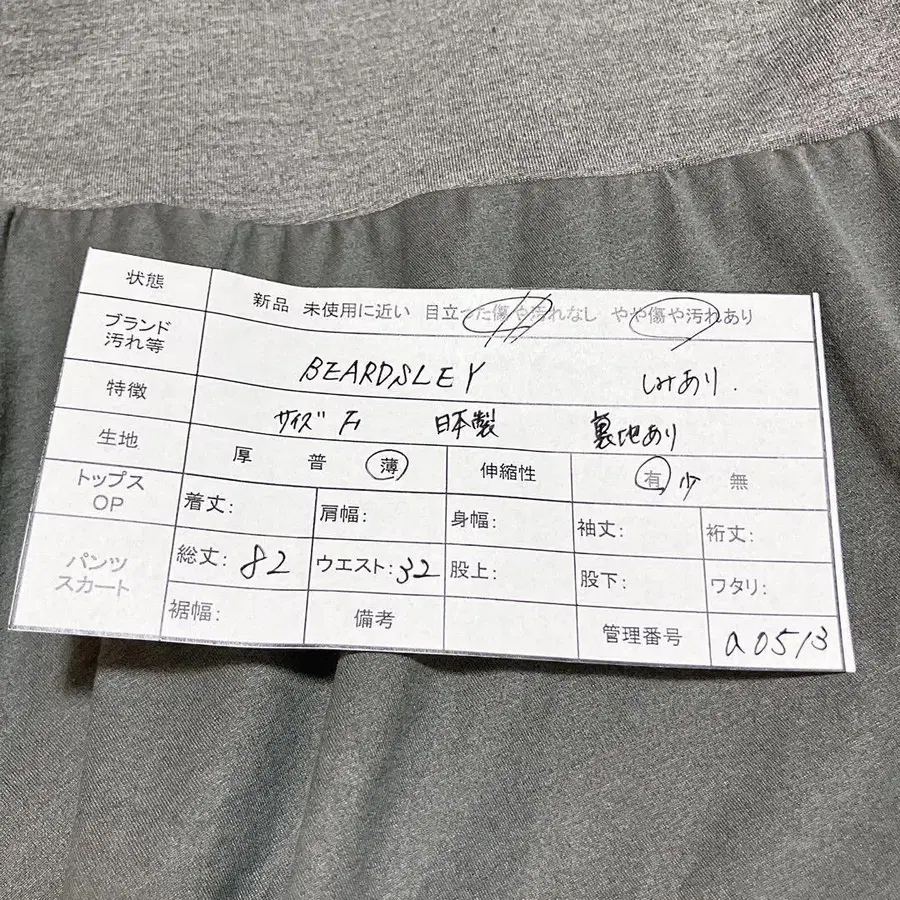 状態 新品 未使用に近い 目立った傷や汚れなし やや傷や汚れあり
ブランド
汚れ等
BEARDSLEY しみあり.
特徴 サイズ F 日本製 裏地あり
生地 厚 普 薄 伸縮性 有 少 無
トップス
OP
着丈: 肩幅: 身幅: 袖丈: 裄丈:
パンツ
スカート
総丈: 82 ウエスト: 32 股上: 股下: ワタリ:
裾幅: 備考 管理番号 a0513